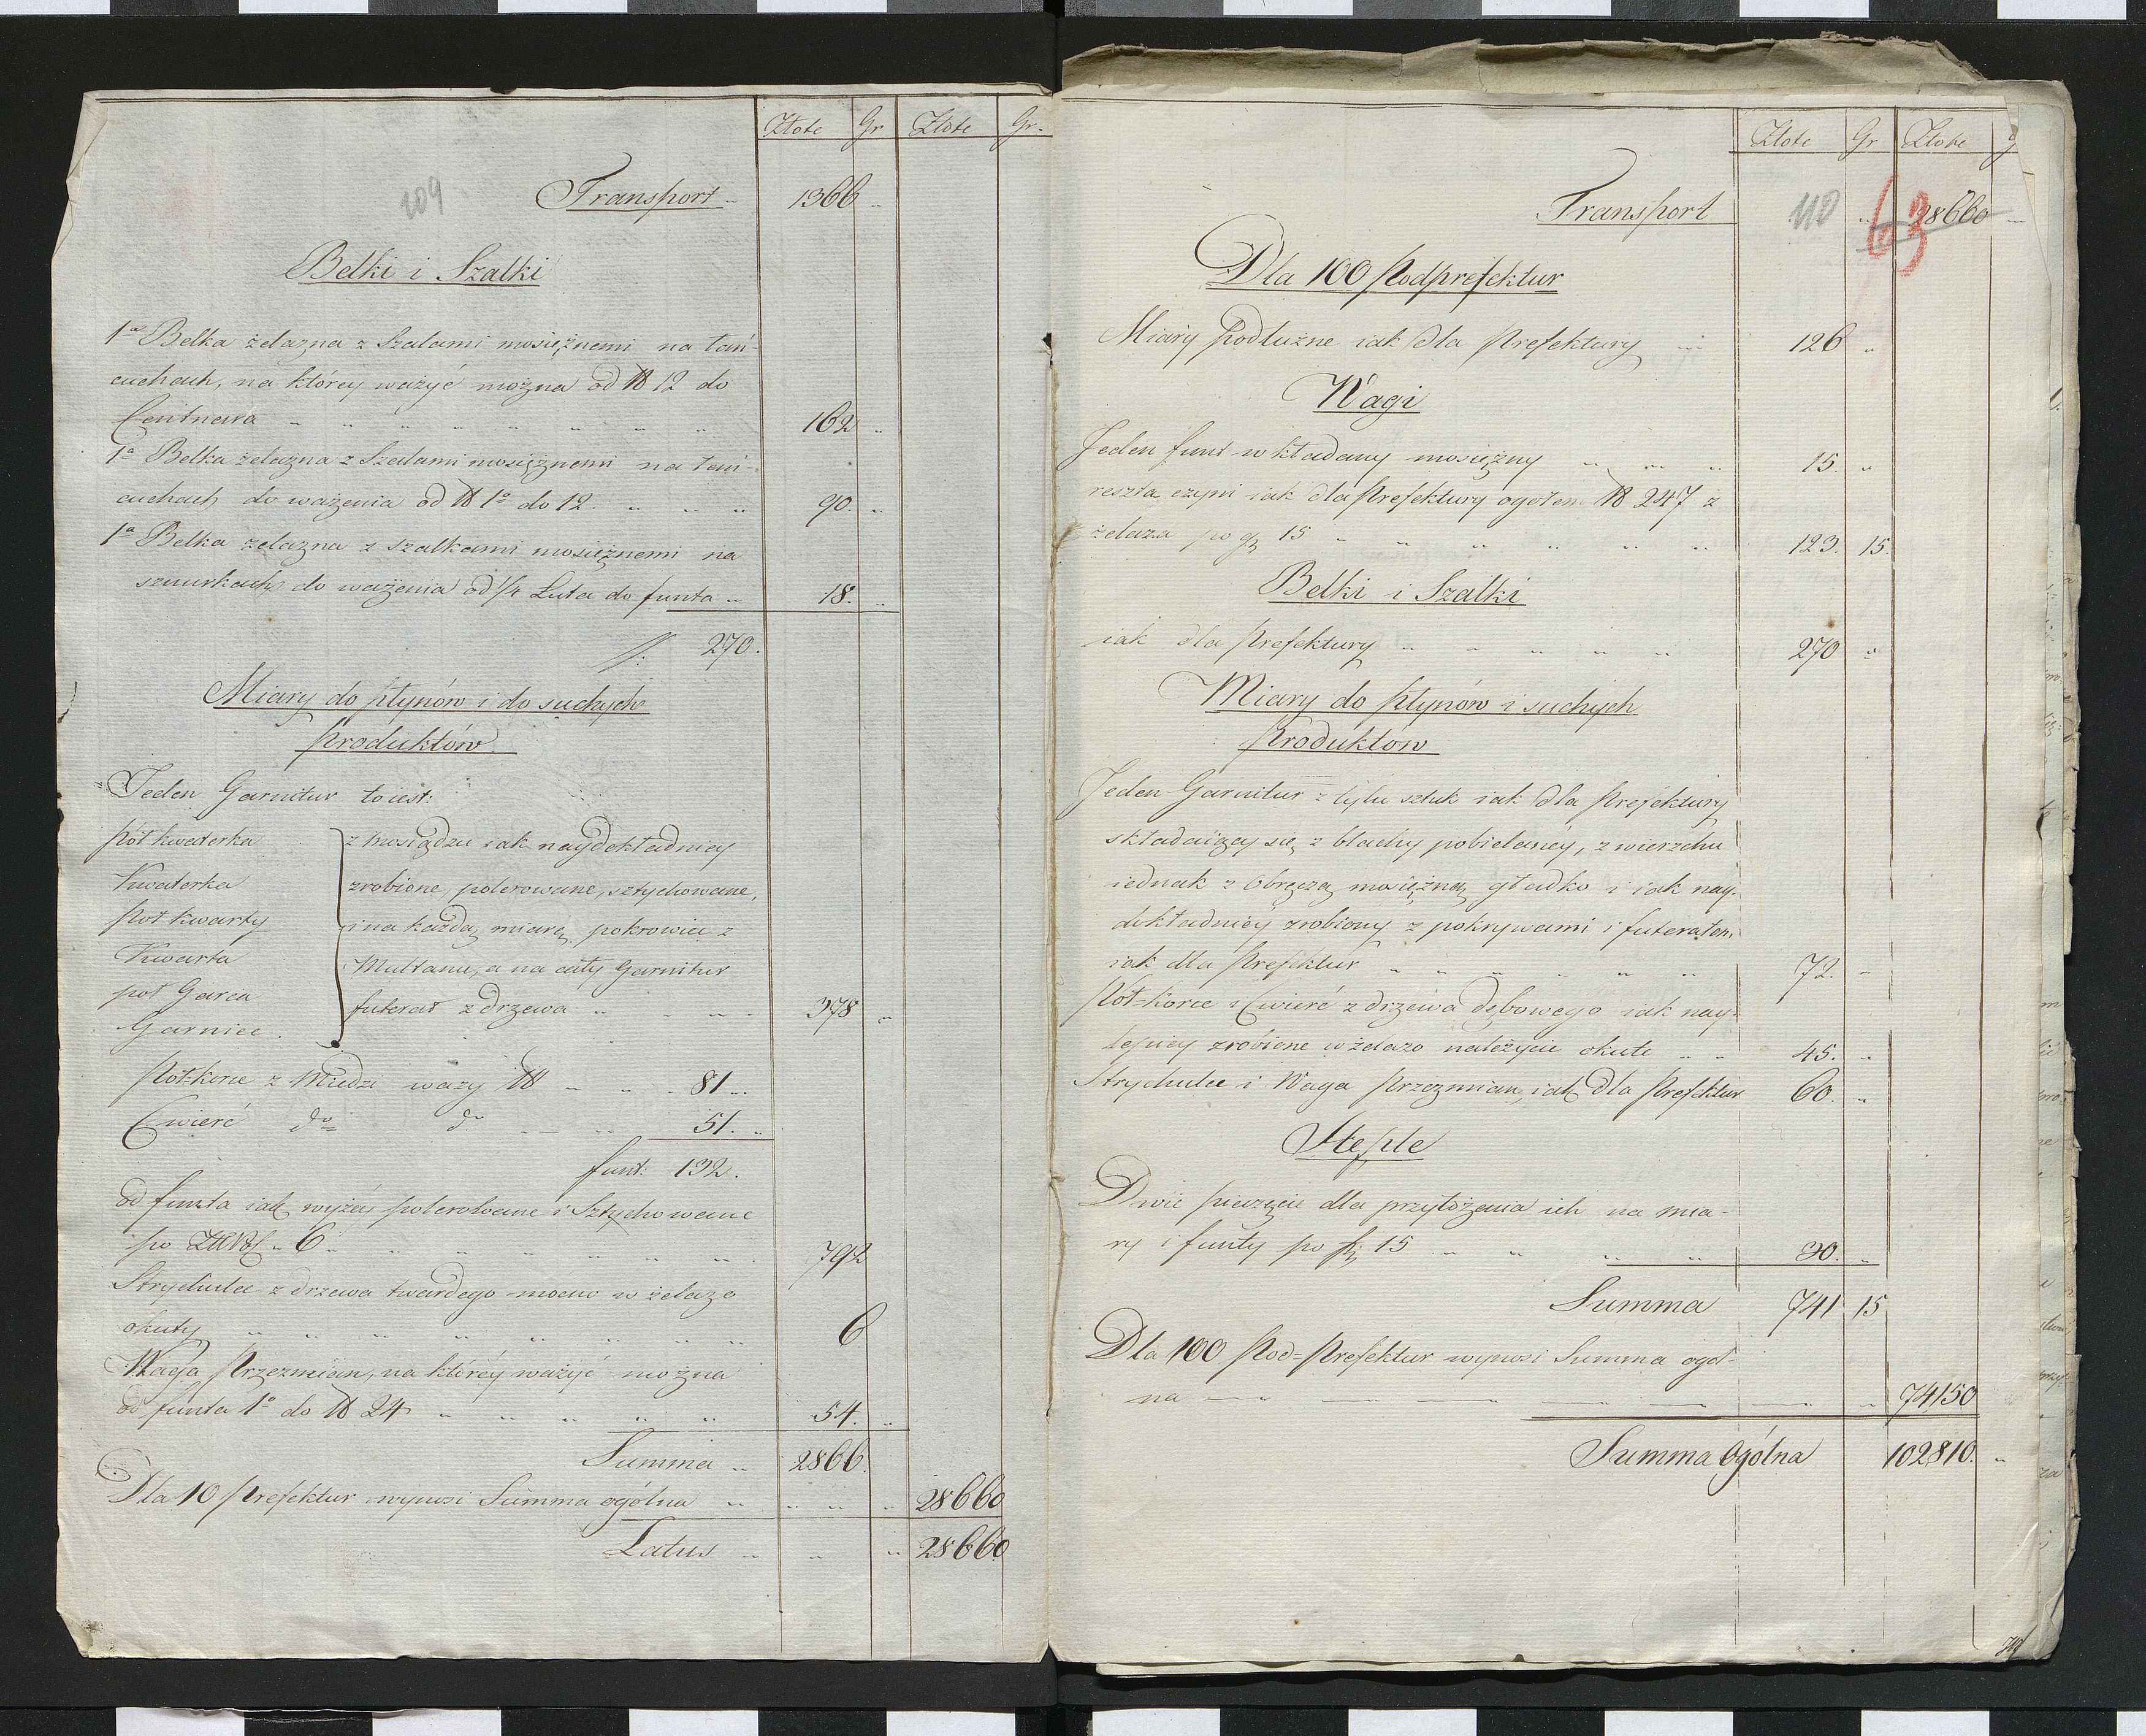 Złote Gr Złote Gr.
109
Transport 1366
Belki i Szalki
1a Belka żelazna z Szalami mosiężnemi na łań-
cuchach, na którey ważyć można od ℔ 12 do
Centnara 162
1a Belka żelazna z Szalami mosiężnemi na łań-
cuchach do ważenia od ℔ 1o do 12. 90.
1a Belka żelazna z szalkami mosiężnemi na
sznurkach do ważenia od 1/4 Łuta do funta 18.
270.
Miary do płynów i do suchych
Produktów
Jeden Garnitur to iest:
Pół kwaterka z Mosiądzu iak naydokładniey
Kwaterka zrobione, polerowane, sztychowane,
Pół kwarty i na każdą miarę pokrowiec z
Kwarta Multanu, a na cały Garnitur
pół Garca futerał z drzewa 378
Garniec.
Pół-korce z Miedzi waży ℔ 81
Cwierć do do 51.
funt: 132.
od funta iak wyżey polerowane i Sztychowane
po 6 792
Strychulec z drzewa twardego mocno w żelazo
okuty 6
Waga Przezmian, na którey ważyć można
od funta 1o do ℔ 24 54.
Summa 2866.
Dla 10 Prefektur wynosi Summa ogólna 28660
Latus 28660
Złote Gr Złote g
Transport 110 63 28660
Dla 100 Podprefektur
Miary podłużne iak dla Prefektury 126
Wagi
Jeden funt wkładany mosiężny 15.
reszta czyni iak dla Prefektury ogołem ℔ 247 z
żelaza po gr 15 123. 15.
Belki i Szalki
iak dla Prefektury 270
Miary do płynów i suchych
Produktów
Jeden Garnitur z tylu sztuk iak dla Prefektury
składaiący się z blachy pobielaney, z wierzchu
iednak z obręczą mosiężną gładko i iak nay-
dokładniey zrobiony z pokrywami i futerałem
iak dla Prefektur 72.
Pół-korce i Cwierć z drzewa dębowego iak nay-
lepiey zrobione w żelazo należycie okute 45.
Strychulec i Waga Przezmian, iak dla Prefektur 60.
Steple
Dwie pieczęcie dla przyłożenia ich na mia-
ry i funty po 15 30.
Summa 741 15
Dla 100 Pod-Prefektur wynosi Summa ogól-
na 74150
Summa Ogólna 102810.